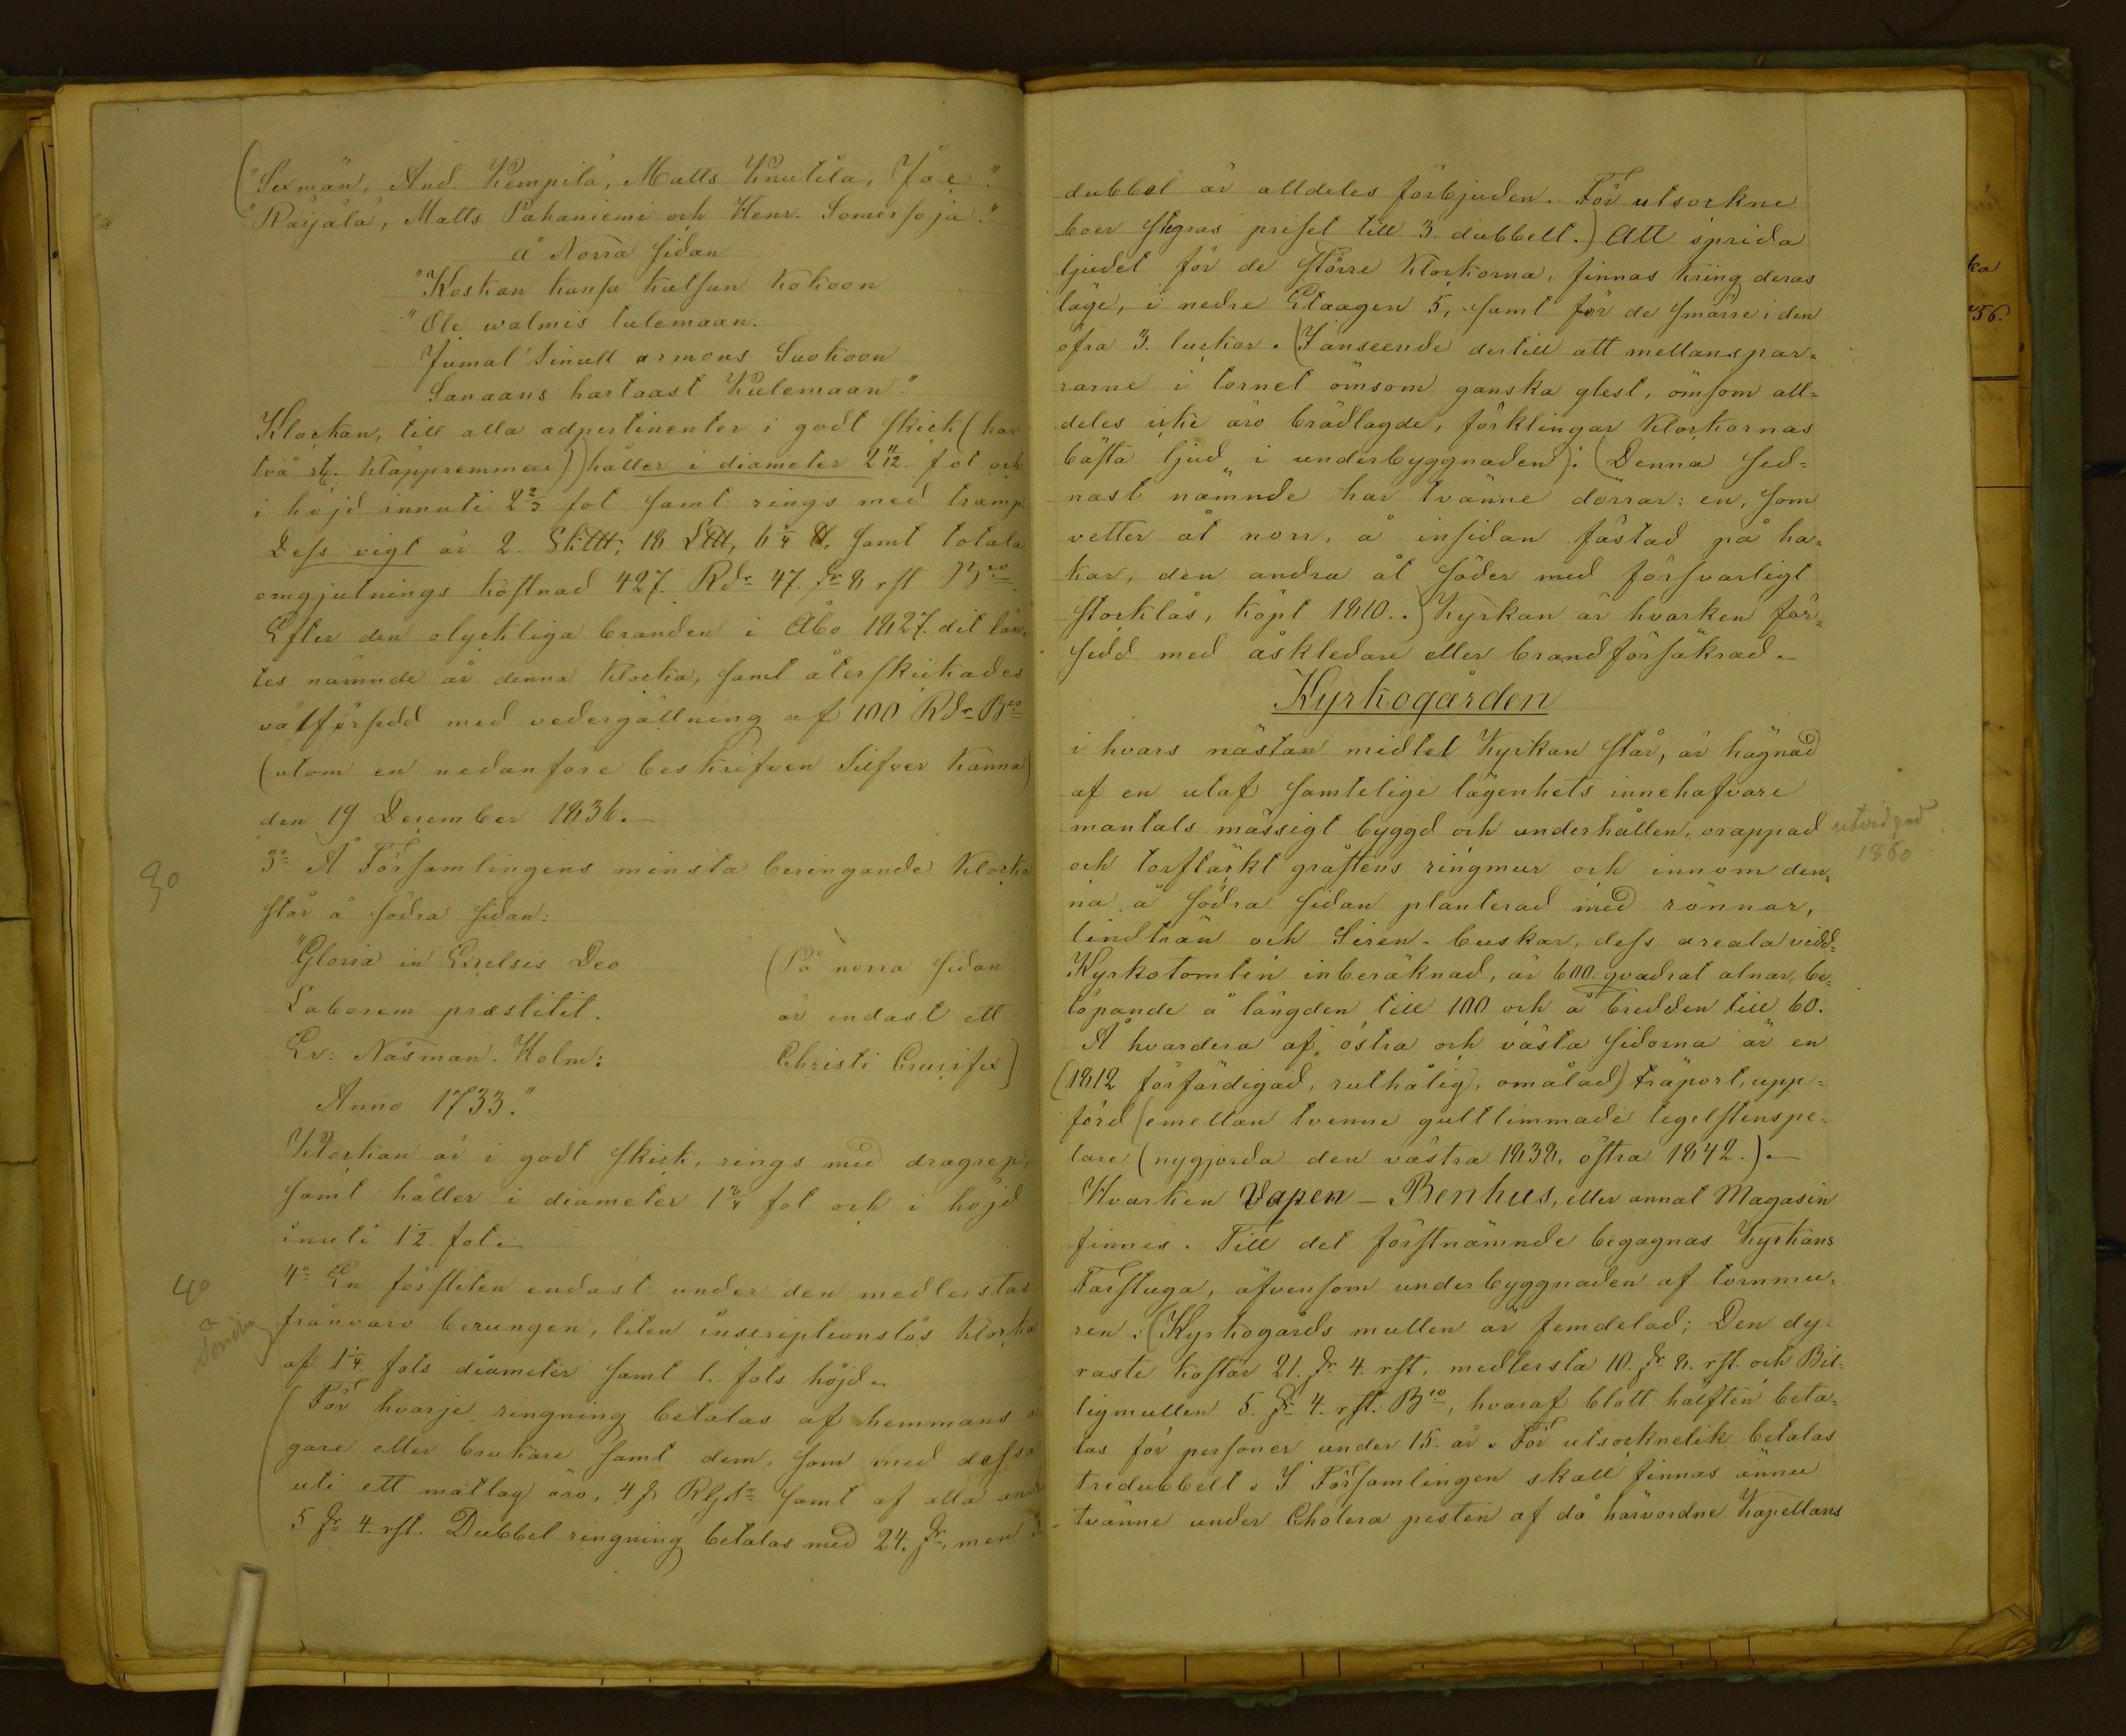 "Sexmän, And. Kempilä, Matts Knutila, Jac."
"Räijälä, Matts Pahaniemi och Henr. Somersoja."
å Norra sidan
"Koskan kansa kutsun kokoon
"Ole walmis tulemaan.
Jumal' Sinull armons Suokoon
Sanaans hartaast Kulemaan."
Klockan, till alla adpertinenter i godt skick (har
två st. kläppremmar)) håller i diameter 2 11/12. fot och
i höjd innuti 2 2/3 fot samt rings med tramp.
Dess vigt är 2. Sk℔, 18 L℔, 6 1/4 ℔, samt totala
omgjutnings kostnad 427. Rdr 47. sr 8 rst Bco
Efter den olyckliga branden i Åbo 1827. dit lån-
tes nämnde år denna klocka, samt återskickades
välförsedd med vedergällning af 100 Rdr Bco
(utom en nedanföre beskrifven Silfver kanna)
den 19 December 1836.
30
3o Å Församlingens minsta beringande Klocka
står å södra sidan:
"Gloria in Excelsis Deo
Laborem præstitit.
Er: Näsman. Holm:
Anno 1733."
(På norra sidan
är endast ett
Christi Crucifix)
Klockan är i godt skick, rings med dragrep,
samt håller i diameter 1 3/4 fot och i höjd
inuti 1 1/2. fot.
40
4o En för stilen endast under den medlerstas
frånvaro berungen, liten inscriptionslös klocka
af 1 1/4. fots diameter samt 1. fots höjd.
(För hvarje ringning betalas af hemmans ä-
gare eller brukare samt dem, som med dessa
uti ett matlag äro, 4 s Rgds samt af alla andra
5 sr 4. rst. Dubbel ringning betalas med 24. sr, men 3
dubbel är alldeles förbjuden. För utsockne
boer stegras priset till 3. dubbelt.) Att sprida
ljudet för de större klockorna, finnas kring deras
läge, i nedre Etaagen 5, samt för de smärre i den
öfra 3. luckor. (I anseende dertill att mellanspar-
rarne i tornet ömsom ganska glest, ömsom all-
deles icke äro brädlagde, förklingar klockornas
bästa ljud i underbyggnaden). (Denna sed-
nast nämnde har tvänne dörrar: en, som
vetter åt norr, å insidan fästad på ha-
kar, den andra åt söder med försvarligt
stocklås, köpt 1810..) Kyrkan är hvarken för-
sedd med åskledare eller brandförsäkrad.
Kyrkogården
i hvars nästan midtel Kyrkan står, är hägnad
af en utaf samtelige lägenhets innehafvare
mantals mässigt byggd och underhållen, orappad
utvidgad
1860
och torftäkt gråstens ringmur och innom den-
na å södra sidan planterad med rönnar,
lindträn och Siren-buskar, dess areala vidd-
Kyrkotomten inberäknad, är 600. qvadrat alnar, be-
löpande å längden till 100 och å bredden till 60.
Å hvardera af östra och västa sidorna är en
(1812 förfärdigad, ruthålig, omålad) träport, upp-
förd (emellan tvenne gultlimmade tegelstenspe-
lare (nygjorda den västra 1838, östra 1842.).
Hvarken Vapen-Benhus, eller annat Magasin
finnes. Till det förstnämnde begagnas Kyrkans
Farstuga, äfvensom underbyggnaden af tornmu-
ren. (Kyrkogårds mullen är femdelad; Den dy-
raste kostar 21. sr 4. rst, medlersta 10. sr 8. rst. och Bil-
ligmullen 5. sr 4. rst. Bco, hvaraf blott hälften beta-
las för personer under 15. år. För utsocknelik betalas
tredubbelt. I Församlingen skall finnas ännu
tvänne under Cholera pesten af då härvordne Kapellans